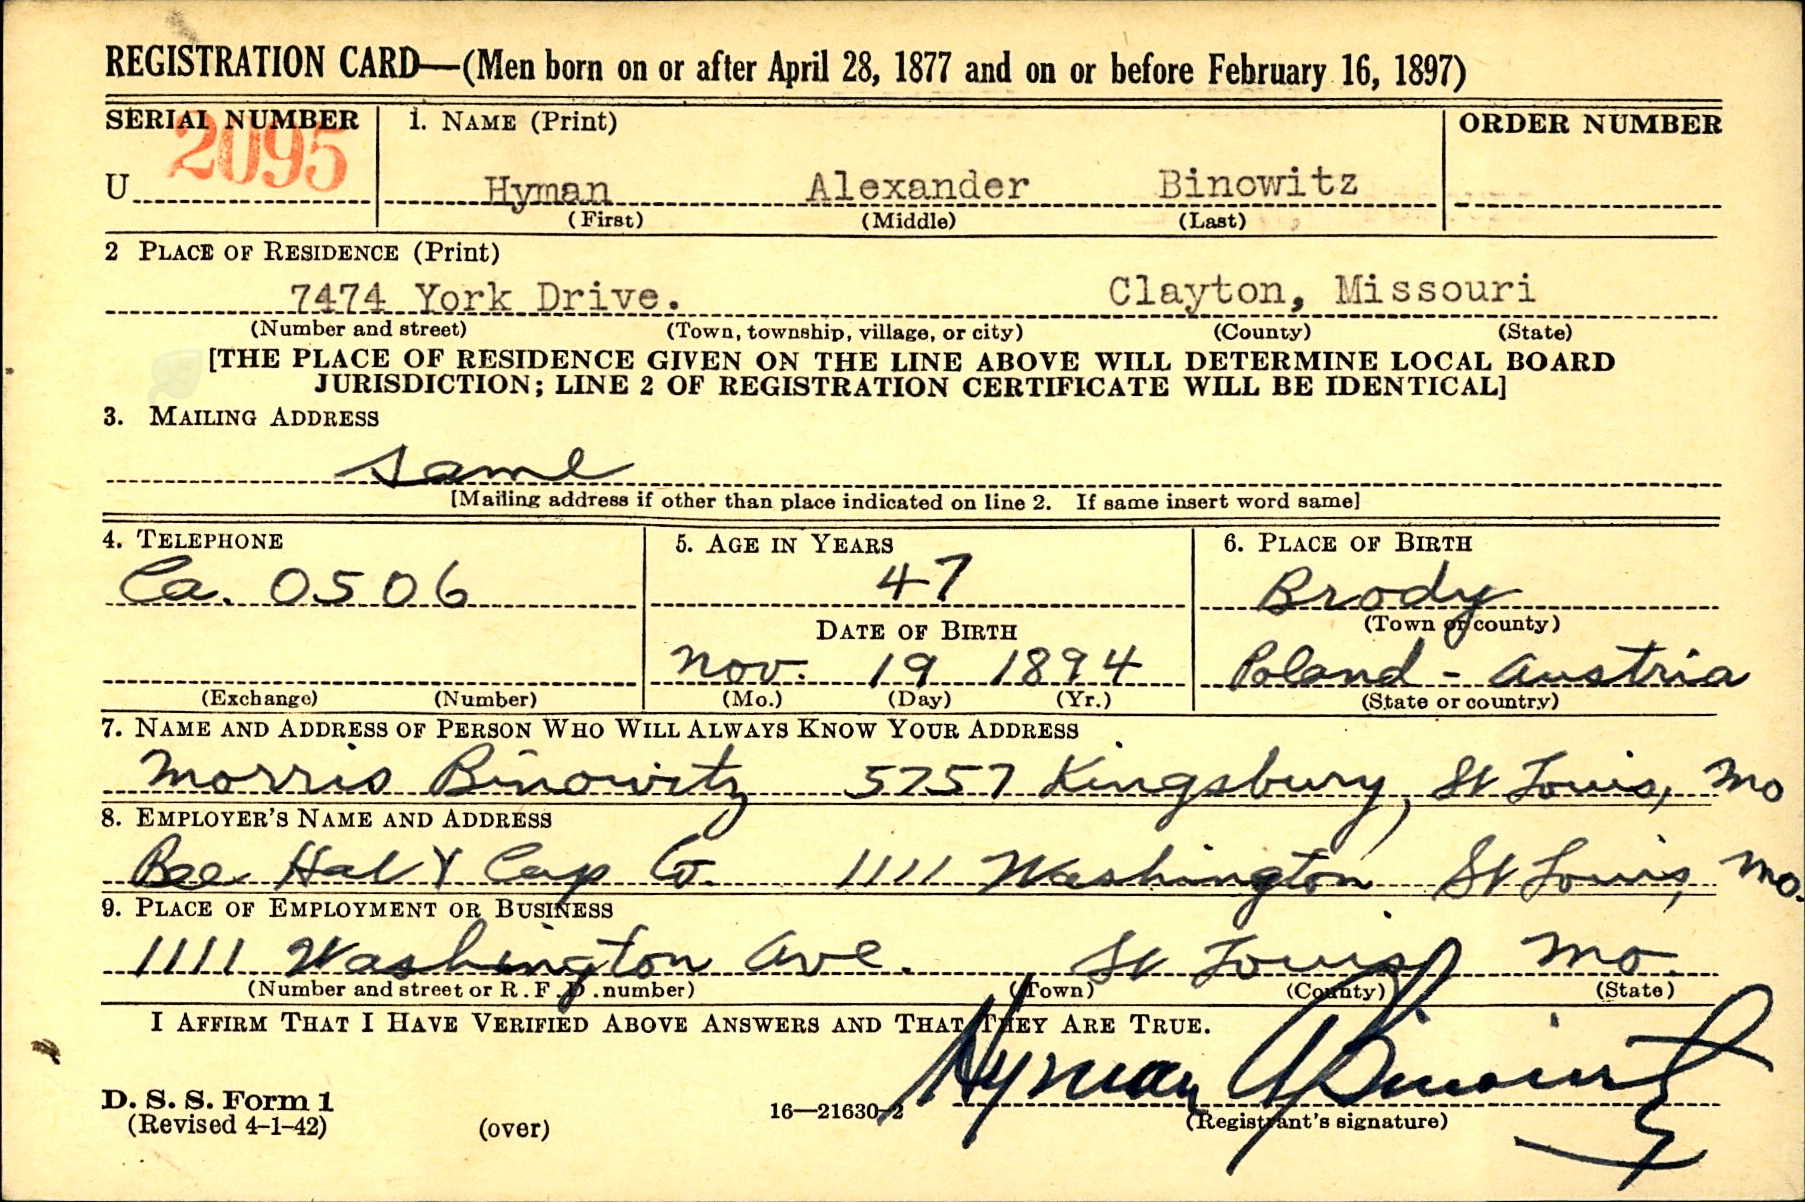 REGISTRATION CARD—(Men born on or after April 28, 1877 and on or before February 16, 1897)
SERIAL NUMBER 1. NAME (Print) ORDER NUMBER
U 2095 Hyman Alexander Binowitz
(First) (Middle) (Last)
2 PLACE OF RESIDENCE (Print)
7474 York Drive. Clayton, Missouri
(Number and street) (Town, township, village, or city) (County) (State)
[THE PLACE OF RESIDENCE GIVEN ON THE LINE ABOVE WILL DETERMINE LOCAL BOARD
JURISDICTION; LINE 2 OF REGISTRATION CERTIFICATE WILL BE IDENTICAL]
3. MAILING ADDRESS
same
[Mailing address if other than place indicated on line 2. If same insert word same]
4. TELEPHONE 5. AGE IN YEARS 6. PLACE OF BIRTH
Ca. 0506 47 Brody
DATE OF BIRTH (Town or county)
Nov. 19 1894 Poland - Austria
(Exchange) (Number) (Mo.) (Day) (Yr.) (State or country)
7. NAME AND ADDRESS OF PERSON WHO WILL ALWAYS KNOW YOUR ADDRESS
Morris Binowitz 5757 Kingsbury, St Louis, Mo
8. EMPLOYER'S NAME AND ADDRESS
Bee Hat & Cap Co. 1111 Washington St Louis, Mo.
9. PLACE OF EMPLOYMENT OR BUSINESS
1111 Washington Ave. St Louis Mo.
(Number and street or R. F. D. number) (Town) (County) (State)
I AFFIRM THAT I HAVE VERIFIED ABOVE ANSWERS AND THAT THEY ARE TRUE.
Hyman A Binowitz
D. S. S. Form 1
(Revised 4-1-42) (over) 16—21630-2 (Registrant's signature)